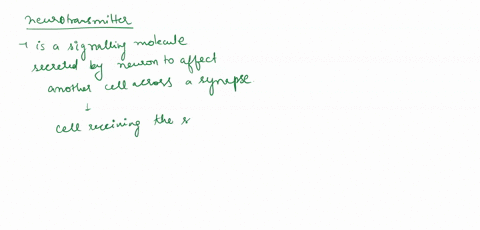 neurotransmitter
→ is a signalling molecule
secreted by neuron to affect
another cell across a synapse
↓
cell receiving the s